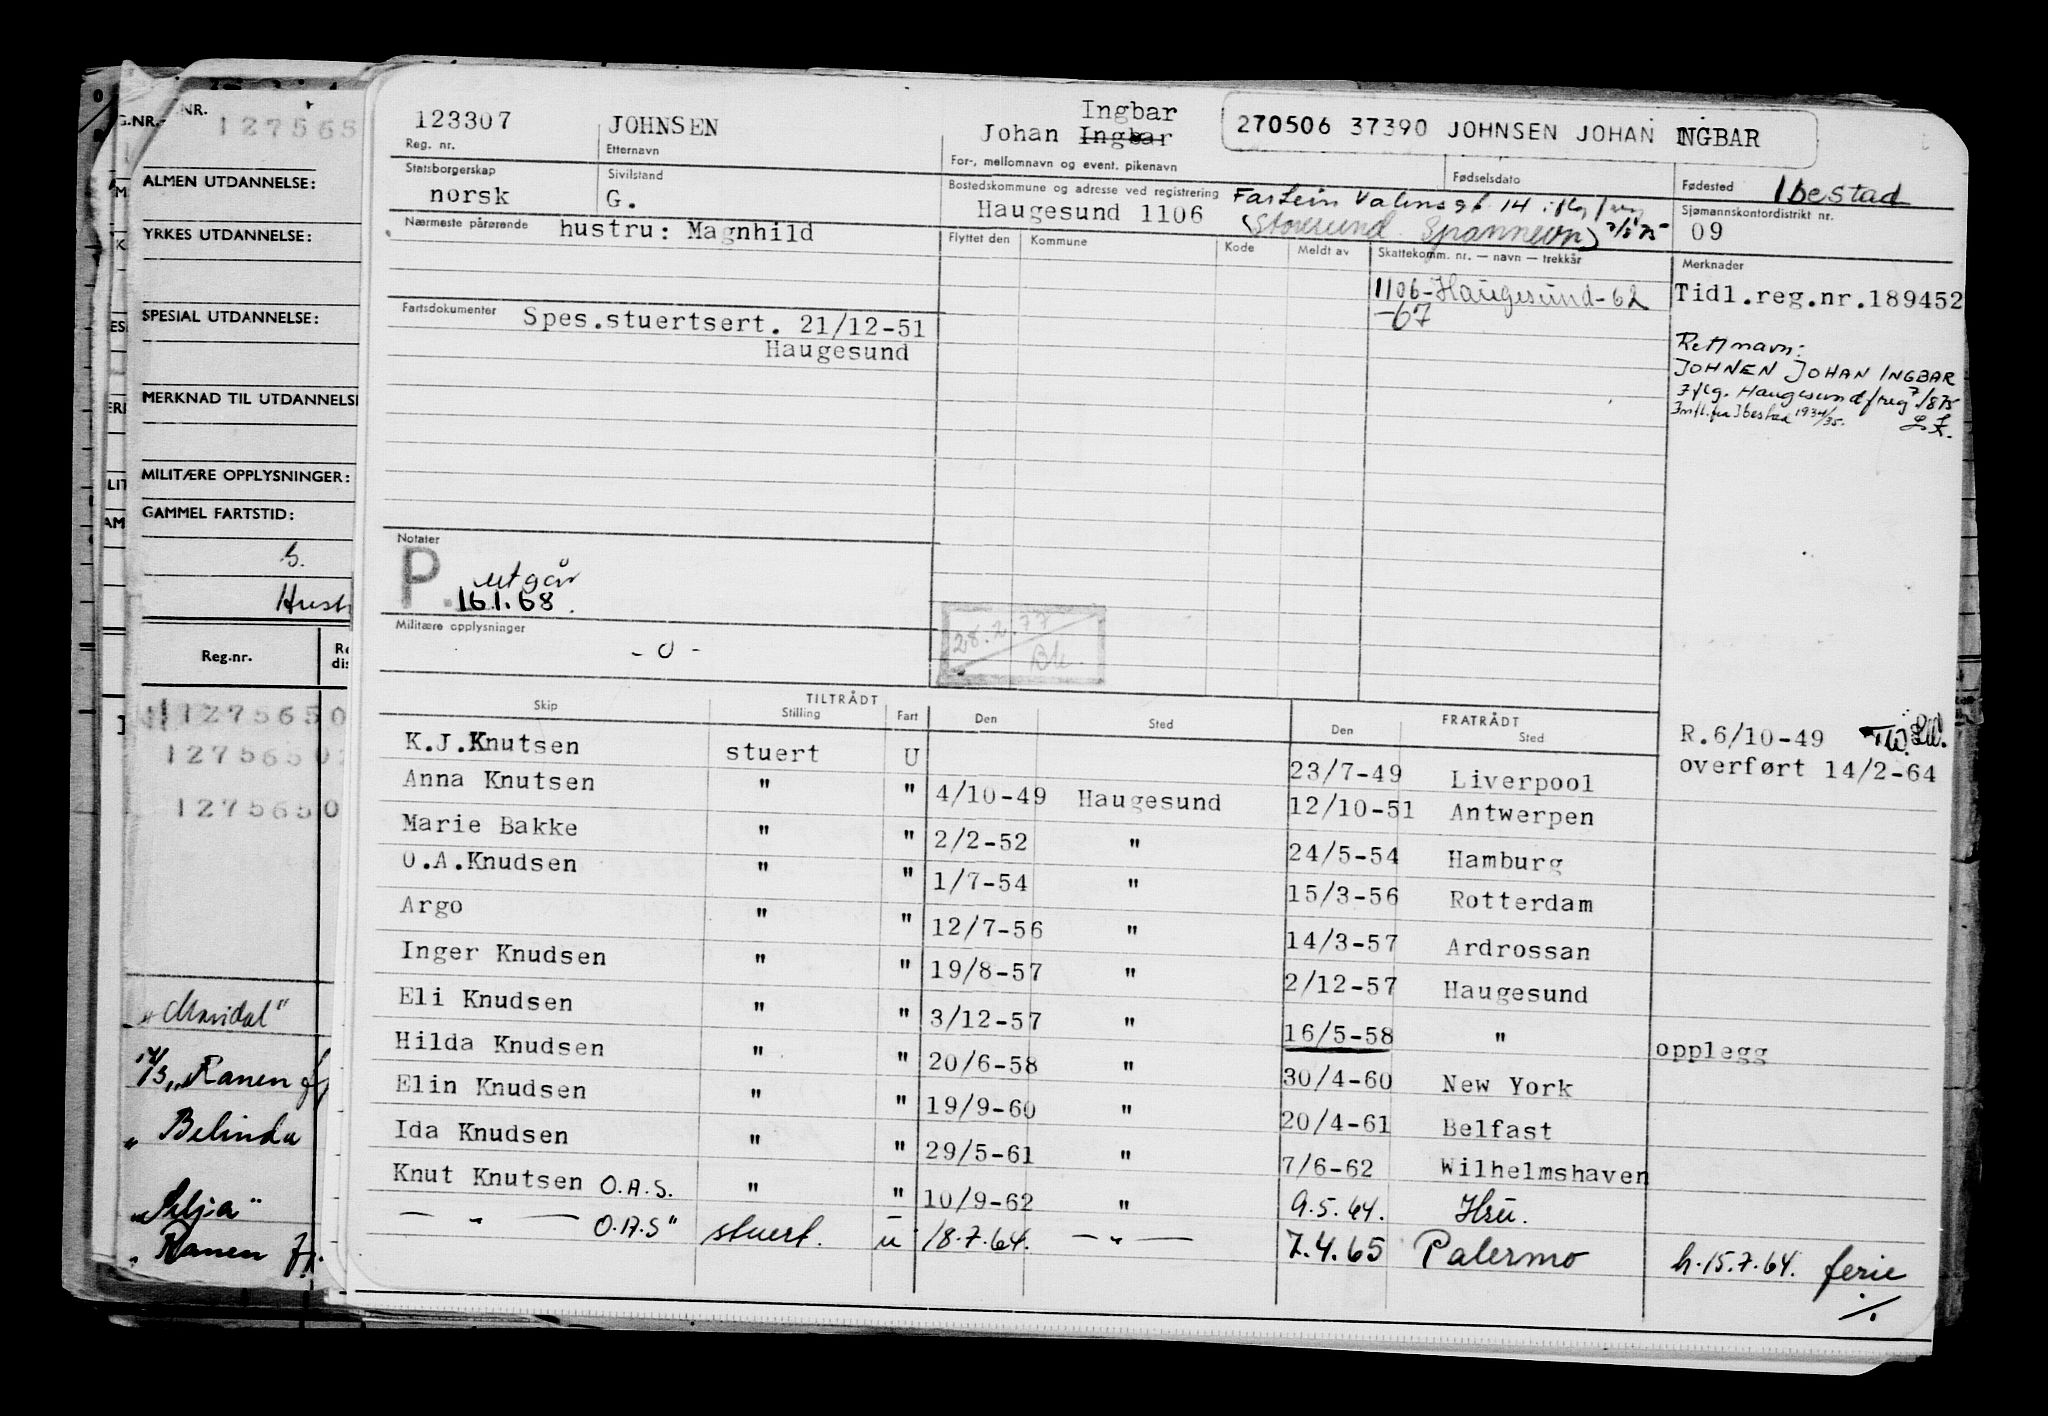 G.NR. NR. 127565
ALMEN UTDANNELSE:
YRKES UTDANNELSE:
SPESIAL UTDANNELSE:
MERKNAD TIL UTDANNELSE
MILITÆRE OPPLYSNINGER:
GAMMEL FARTSTID:
S.
Hust
Reg.nr.
1275650
127565
1275650
"Maridal"
"Ranen
" Belinda
"Silja"
" Ranen
123307 JOHNSEN Johan Ingbar Ingbar 270506 37390 JOHNSEN JOHAN INGBAR
Reg. nr. Etternavn For-, mellomnavn og event. pikenavn Fødselsdato
Statsborgerskap Sivilstand Bostedskommune og adresse ved registrering Fødested Ibestad
norsk G. Haugesund 1106 Fartein Valensgt. 14 iflg f/reg 7/8 75
(Storesund Spannevn) Sjømannskontordistrikt nr.
09
Nærmeste pårørende hustru: Magnhild
Flyttet den Kommune Kode Meldt av Skattekomm. nr. — navn — trekkår Merknader
1106-Haugesund-62
-67
Tidl.reg.nr.189452
Fartsdokumenter Spes.stuertsert. 21/12-51
Haugesund
Rett navn:
JOHNEN JOHAN INGBAR
Iflg. Haugesund f/reg 7/8 75
Innfl. fra Ibestad 1934/35.
Notater
P. utgår
16.1.68.
Militære opplysninger
- 0 -
28.2.77
Bk.
TILTRÅDT FRATRÅDT
Skip Stilling Fart Den Sted Den Sted
K.J.Knutsen stuert U 23/7-49 Liverpool R.6/10-49
overført 14/2-64
Anna Knutsen " " 4/10-49 Haugesund 12/10-51 Antwerpen
Marie Bakke " " 2/2-52 " 24/5-54 Hamburg
O.A.Knudsen " " 1/7-54 " 15/3-56 Rotterdam
Argo " " 12/7-56 " 14/3-57 Ardrossan
Inger Knudsen " " 19/8-57 " 2/12-57 Haugesund
Eli Knudsen " " 3/12-57 " 16/5-58 " opplegg
Hilda Knudsen " " 20/6-58 " 30/4-60 New York
Elin Knudsen " " 19/9-60 " 20/4-61 Belfast
Ida Knudsen " " 29/5-61 " 7/6-62 Wilhelmshaven
Knut Knutsen O.A.S. " " 10/9-62 " 9.5.64. Hsu.
— " — O.A.S" stuert. u 18.7.64. — " — 7.4.65 Palermo h.15.7.64. ferie